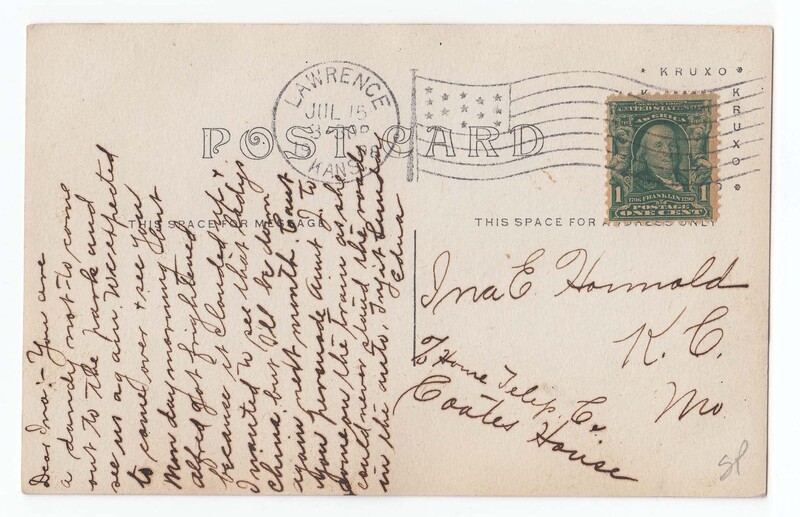 KRUXO
KRUXO
KRUXO
LAWRENCE
JUL 15
KANS.
POST CARD
SERIES 1902
UNITED STATES OF
AMERICA
1 1706 FRANKLIN 1790 1
POSTAGE
ONE CENT
THIS SPACE FOR MESSAGE
THIS SPACE FOR ADDRESS ONLY
Dear Ina:- You are
a dandy not to come
out to the park and
see us again. We expected
to come over + see you
Monday morning but
Alfred got frightened
because it clouded up +
I wanted to see that lady's
china, but I'll be down
again next month. Can't
you persuade Aunt J. to
come on the train as she
could never stand the roads
in the auto. Try it
Edna
Ina E
K. C.
Mo
c/o Home Telep. Co
Coates House
SP